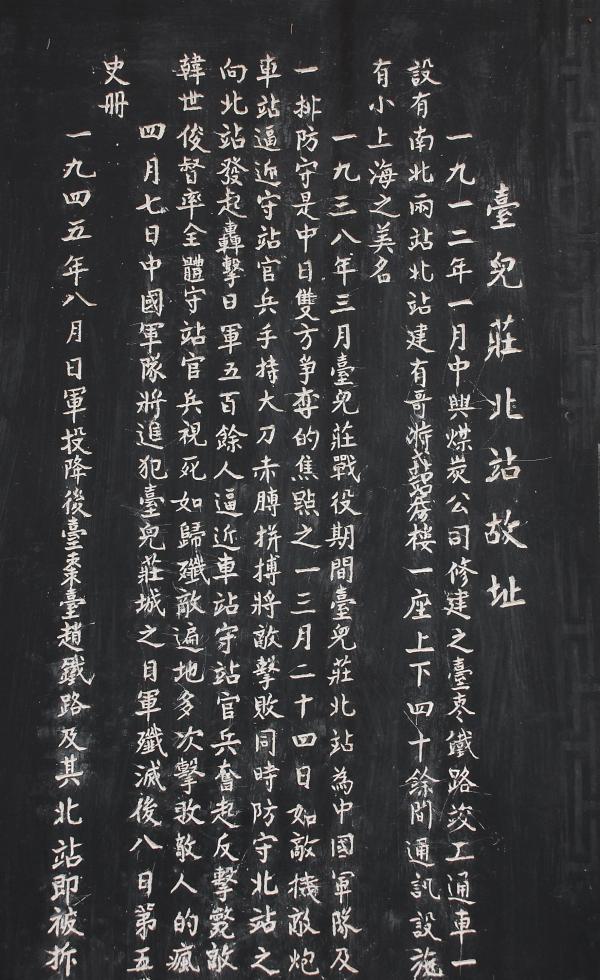 臺兒莊北站故址
一九一二年一月中興煤炭公司修建之臺枣鐵路竣工通車一
設有南北兩站北站建有哥特式券楼一座上下四十餘間通訊設施
有小上海之美名
一九三八年三月臺兒莊戰役期間臺兒莊北站為中國軍隊及
一排防守是中日雙方争奪的焦點之一三月二十四日如敵機敵炮
車站逼近守站官兵手持大刀赤膊拼搏將敵擊敗同時防守北站之
向北站發起轟擊日軍五百餘人逼近車站守站官兵奮起反擊斃敵
韓世俊督率全體守站官兵視死如歸殲敵遍地多次擊敗敵人的瘋
四月七日中國軍隊將進犯臺兒莊城之日軍殲滅後八日第五
史册
一九四五年八月日軍投降後臺棗臺趙鐵路及其北站即被拆